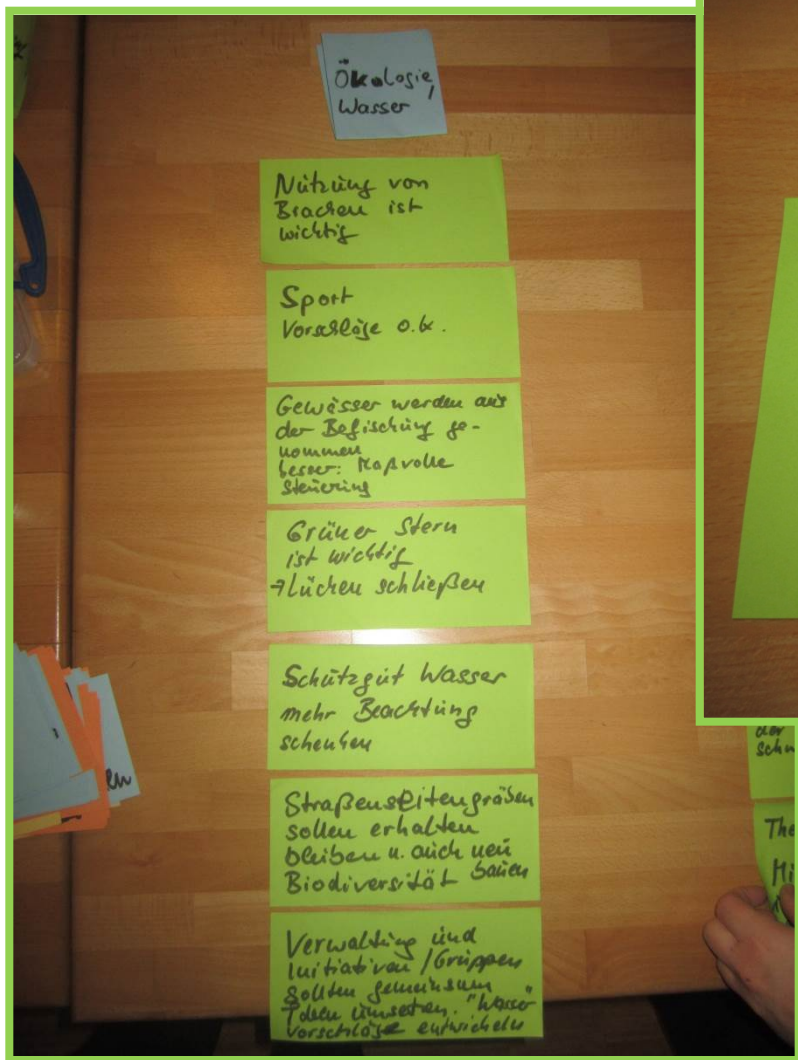 Ökologie,
Wasser
Nutzung von
Brachen ist
wichtig
Sport
Vorschläge o.k.
Gewässer werden aus
der Befischung ge-
nommen
besser: Maßvolle
Steuerung
Grüner Stern
ist wichtig
→ Lücken schließen
Schutzgut Wasser
mehr Beachtung
schenken
Straßenseitengräben
sollen erhalten
bleiben u. auch neu
Biodiversität bauen
Verwaltung und
Initiativen / Gruppen
sollten gemeinsam
Ideen umsetzen. "Wasser"
vorschläge entwickeln
en
der
schn
The
Hi